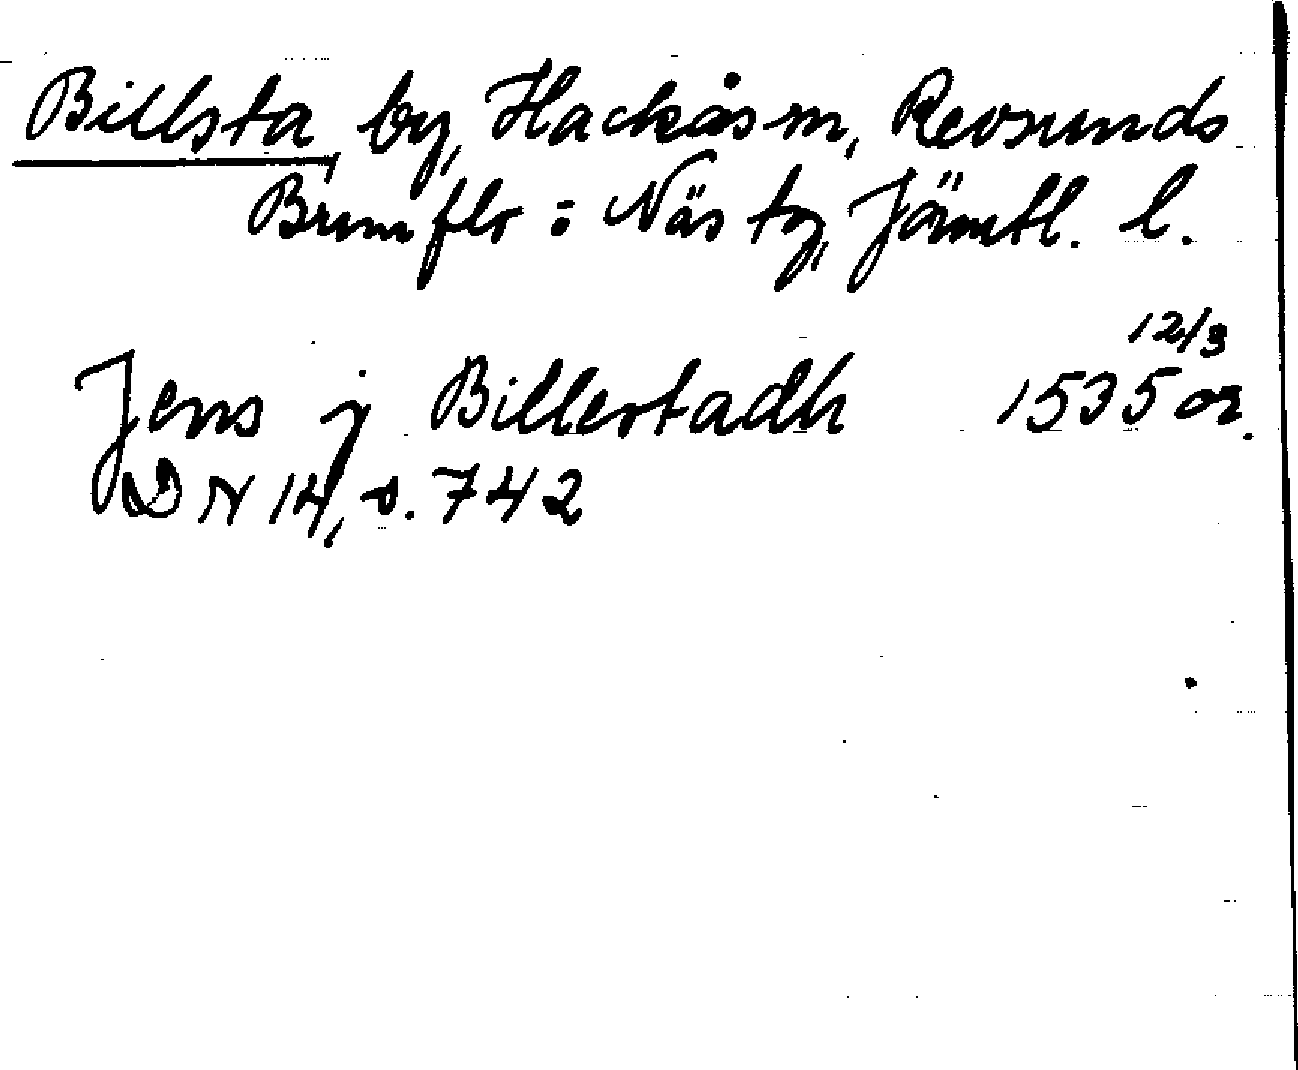 Billsta, by, Hackås sn, Revsunds
Brunflo o Näs tg, Jämtl. l.
12/3
Jens j Billerstadh 1535 or.
DN 14, s. 742